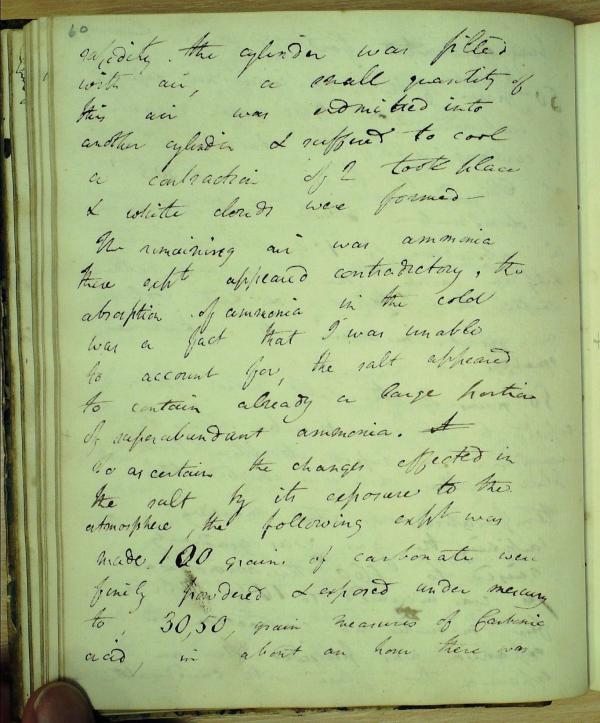 60
rapidity. the cylinder was filled
with air, a small quantity of
this air was admitted into
another cylinder & suffered to cool
a contraction of 2 took place
& white clouds were formed –
The remaining air was ammonia
these expts appeared contradictory, the
absorption of ammonia in the cold
was a fact that I was unable
to account for, the salt appeared
to contain already a large portion
of superabundant ammonia.
to ascertain the changes effected in
the salt by its exposure to the
atmosphere, the following expt was
made, 100 grains of carbonate were
finely powdered & exposed under mercury
to, 30,50, grain measures of Carbonic
acid, in about an hour there was